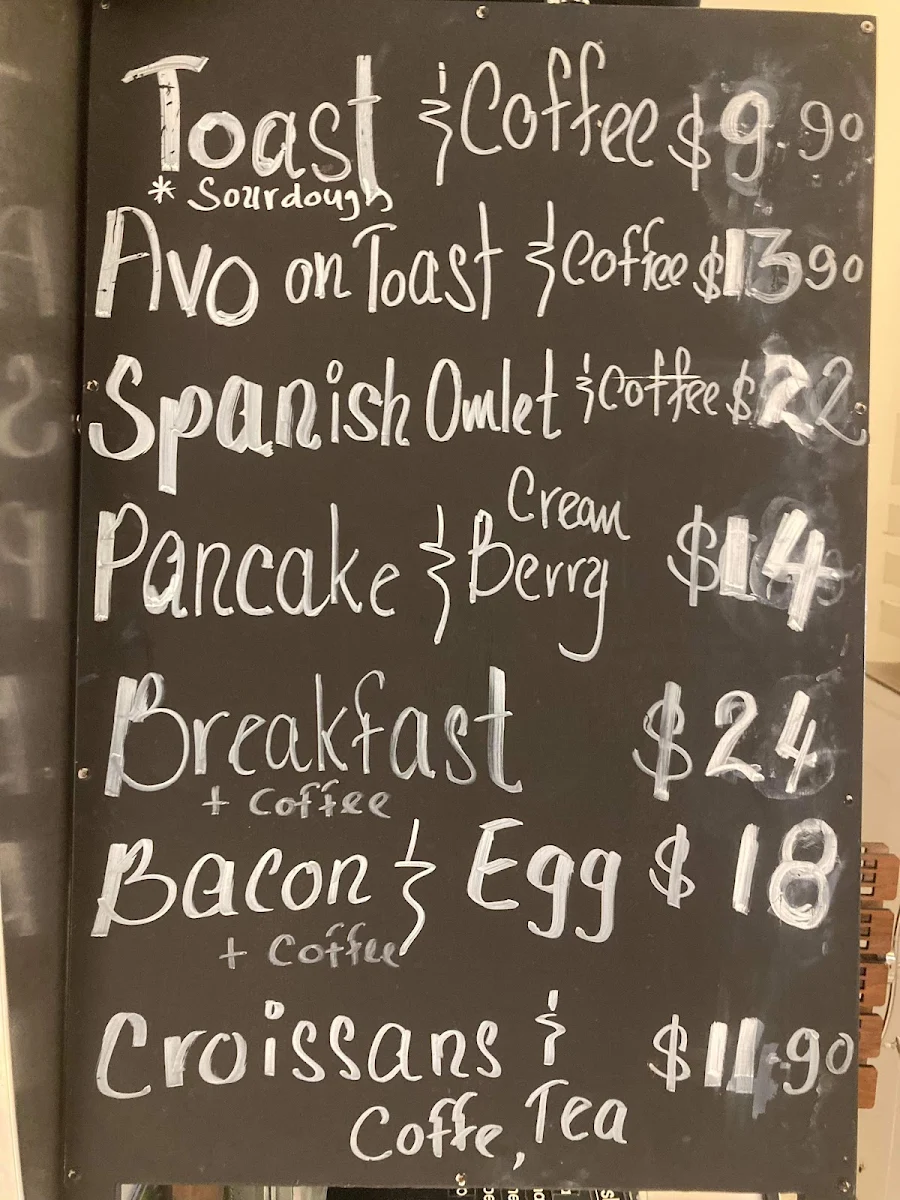 Toast & Coffee $9.90
* Sourdough
Avo on Toast & Coffee $13.90
Spanish Omlet & Coffee $22
Cream
Pancake & Berry $14
Breakfast $24
+ Coffee
Bacon & Egg $18
+ Coffee
Croissans & $11.90
Coffe, Tea